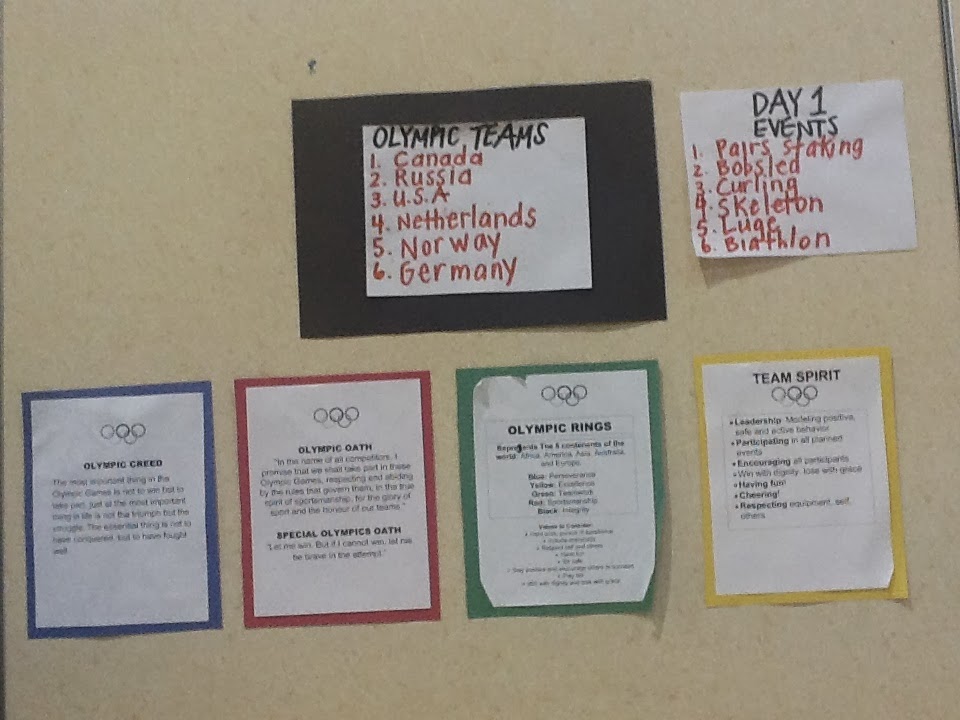 OLYMPIC TEAMS
1. Canada
2. Russia
3. U.S.A
4. Netherlands
5. Norway
6. Germany
DAY 1
EVENTS
1. Pairs staking
2. Bobsled
3. Curling
4. Skeleton
5. Luge
6. Biathlon
OLYMPIC CREED
The most important thing in the
Olympic Games is not to win but to
take part, just as the most important
thing in life is not the triumph but the
struggle. The essential thing is not to
have conquered, but to have fought
well.
OLYMPIC OATH
"In the name of all competitors, I
promise that we shall take part in these
Olympic Games, respecting and abiding
by the rules that govern them, in the true
spirit of sportsmanship, for the glory of
sport and the honour of our teams."
SPECIAL OLYMPICS OATH
"Let me win. But if I cannot win, let me
be brave in the attempt."
OLYMPIC RINGS
Represents The 5 continents of the
world: Africa, America, Asia, Australia,
and Europe.
Blue: Perseverance
Yellow: Excellence
Green: Teamwork
Red: Sportsmanship
Black: Integrity
Values to Consider:
• Respect self and others
• Have fun
• Be safe
• Play fair
• Win with dignity and lose with grace
TEAM SPIRIT
• Leadership: Modeling positive,
safe and active behavior
• Participating in all planned
events
• Encouraging all participants
• Win with dignity, lose with grace
• Having fun!
• Cheering!
• Respecting equipment, self,
others